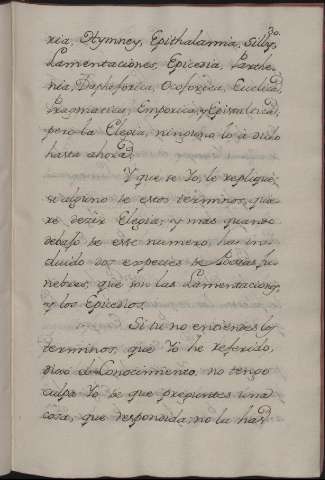 30.
xia, Hymney, Epithalamia, Silby,
Lamentaciones, Epicesia, Parthe-
nia, Dapheforica, Ocoforica, Euctica,
Pragmatica, Emporica, y Epistaltica,
pero la Elegia, ninguno lo à dicho
hasta ahora.
Y que se Yo, le repliquè
si alguno de esos terminos, quie-
re dezir Elegia; y mas quando
debajo de esse numero, has in-
cluido dos especies de Poesias fu-
nebres, que son las Lamentaciones,
y los Epicedios.
Si tu no entiendes los
terminos, que Yo he referido,
dixo el Conocimiento, no tengo
culpa Yo de que preguntes una
cosa, que respondida, no la has